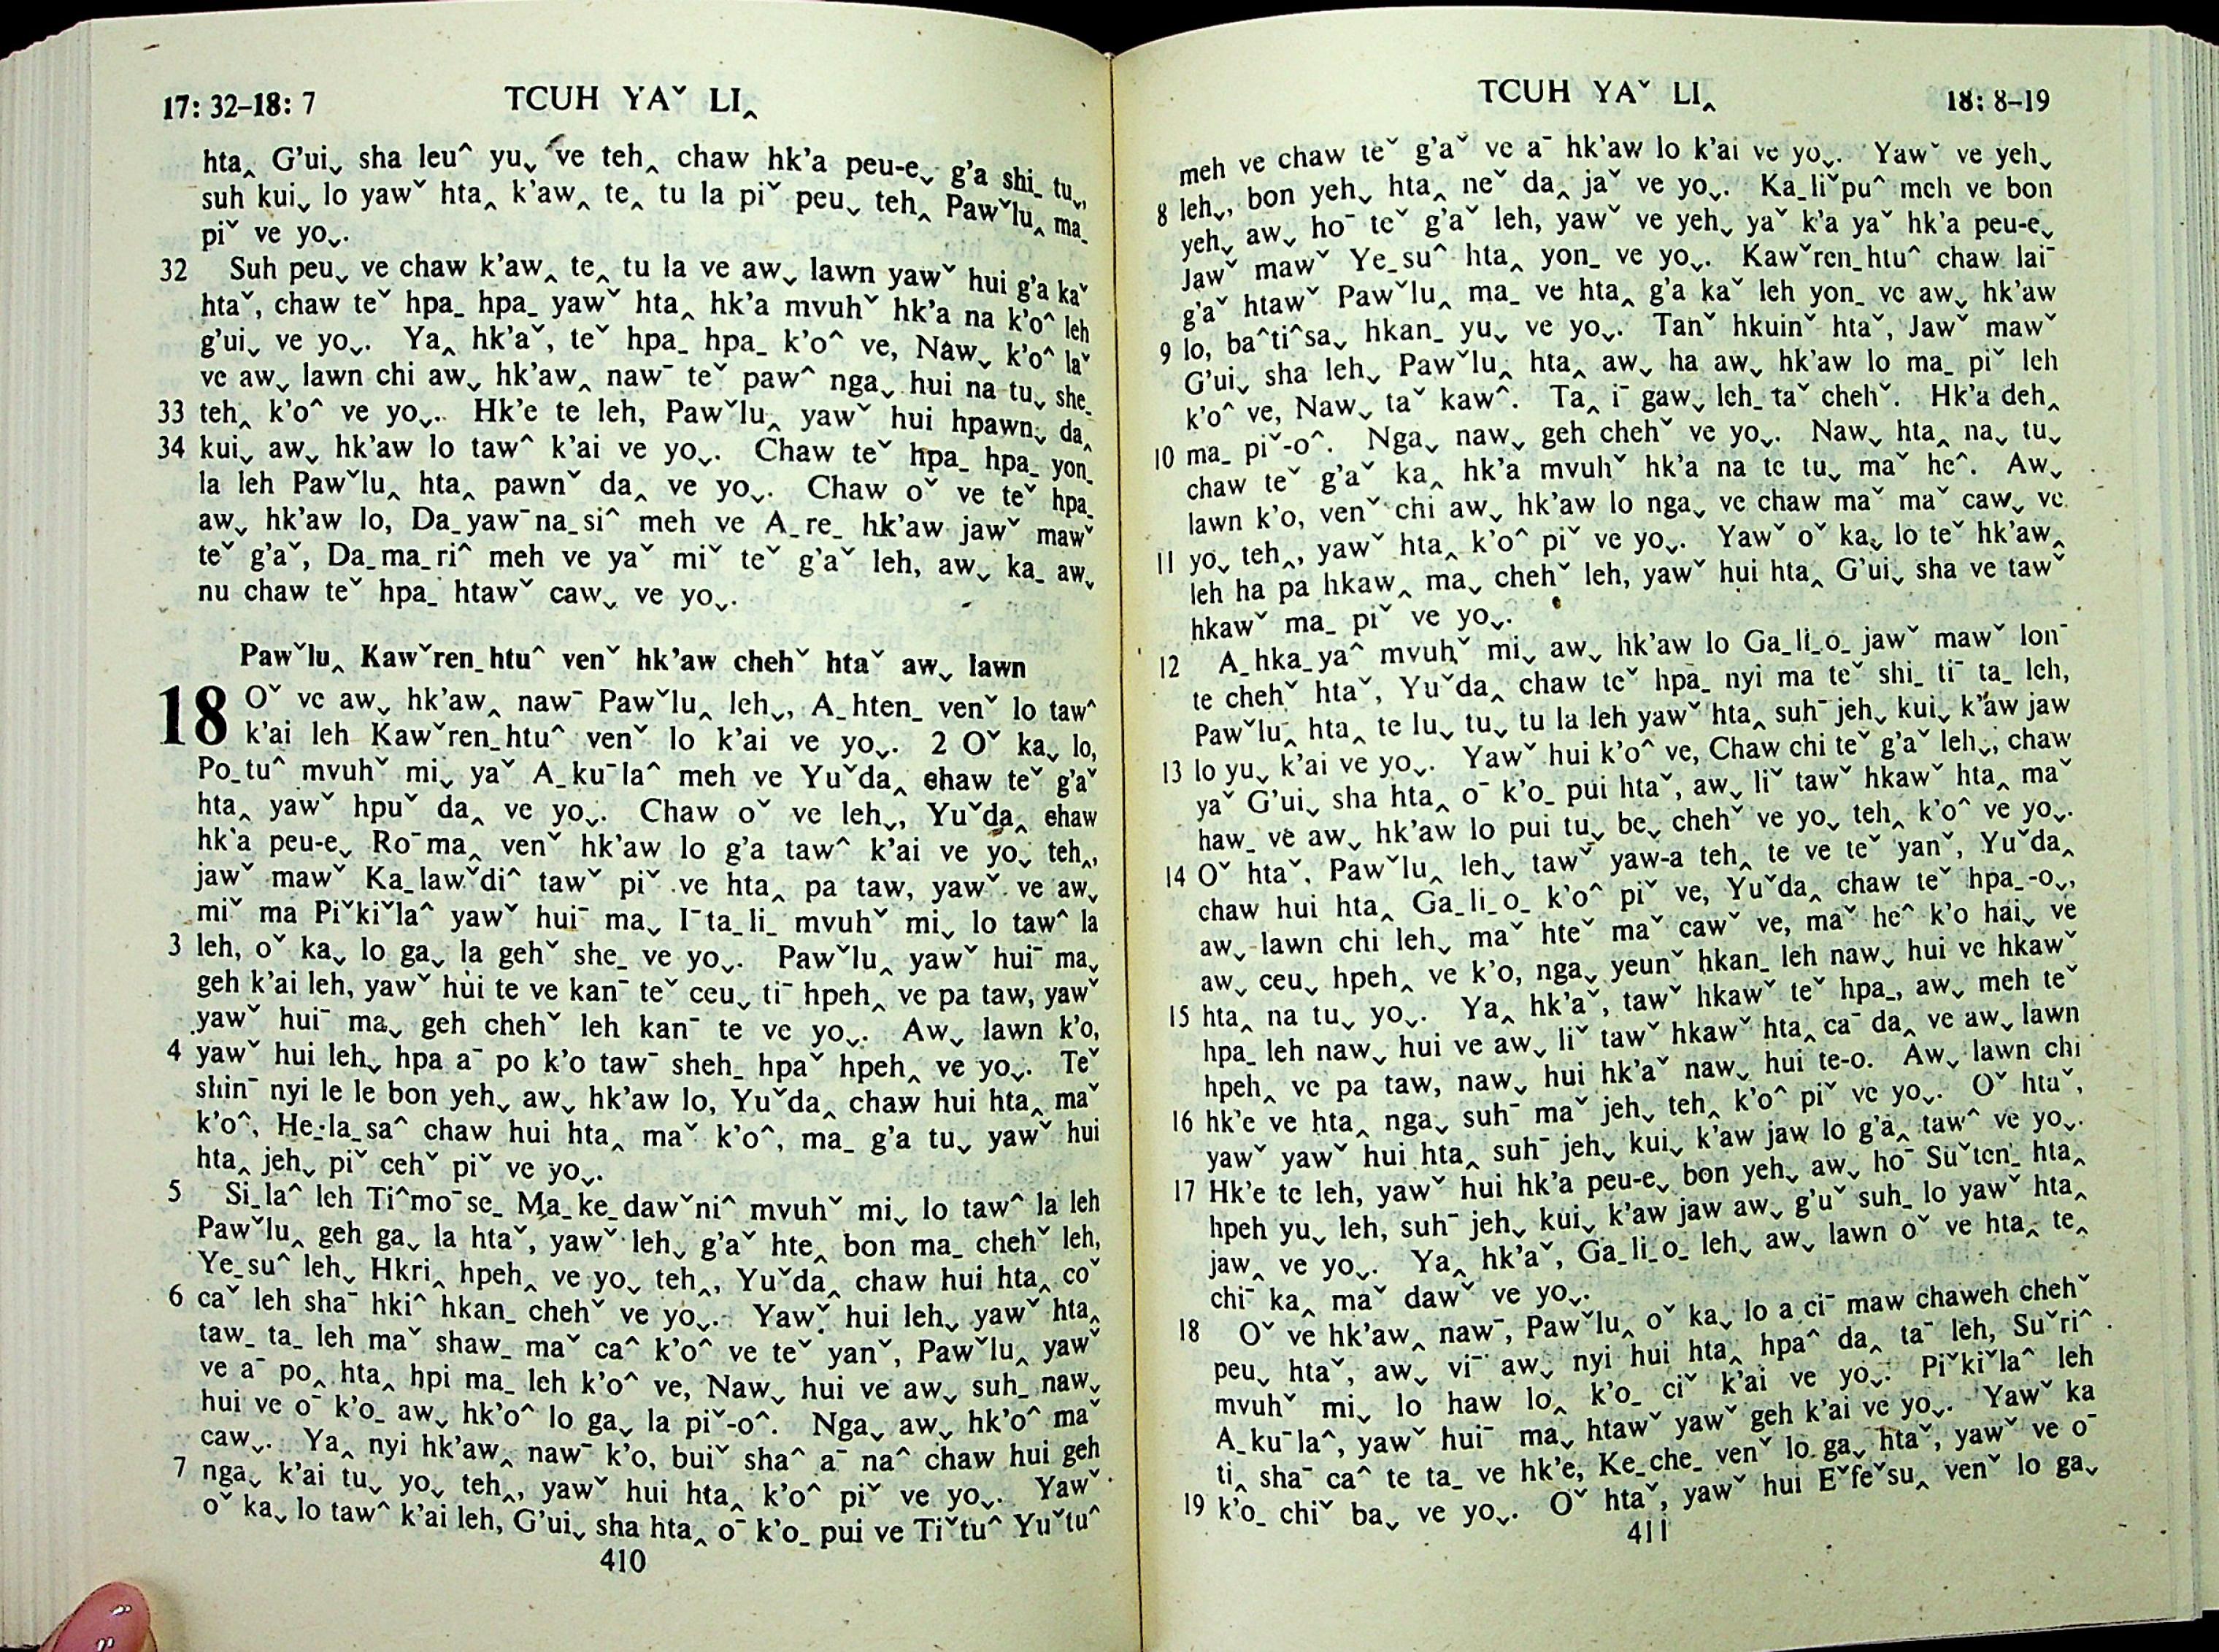 17: 32–18: 7 TCUH YAˇ LI‸
hta‸ G'ui˯ sha leu^ yu˯ ve teh‸ chaw hk'a peu-e˯ g'a shi_ tu˯,
suh kui˯ lo yawˇ hta‸ k'aw‸ te‸ tu la piˇ peu˯ teh‸ Pawˇlu‸ ma_
piˇ ve yo˯.
32 Suh peu˯ ve chaw k'aw‸ te‸ tu la ve aw˯ lawn yawˇ hui g'a kaˇ
htaˇ, chaw teˇ hpa_ hpa_ yawˇ hta‸ hk'a mvuhˇ hk'a na k'o^ leh
g'ui˯ ve yo˯. Ya‸ hk'aˇ, teˇ hpa_ hpa_ k'o^ ve, Naw˯ k'o^ laˇ
ve aw˯ lawn chi aw˯ hk'aw‸ naw¯ teˇ paw^ nga˯ hui na tu˯ she_
33 teh‸ k'o^ ve yo˯. Hk'e te leh, Pawˇlu‸ yawˇ hui hpawn˯ da‸
34 kui˯ aw˯ hk'aw lo taw^ k'ai ve yo˯. Chaw teˇ hpa_ hpa_ yon_
la leh Pawˇlu‸ hta‸ pawnˇ da‸ ve yo˯. Chaw oˇ ve teˇ hpa_
aw˯ hk'aw lo, Da_yaw¯na_si^ meh ve A_re_ hk'aw jawˇ mawˇ
teˇ g'aˇ, Da_ma_ri^ meh ve yaˇ miˇ teˇ g'aˇ leh, aw˯ ka_ aw˯
nu chaw teˇ hpa_ htawˇ caw˯ ve yo˯.
Pawˇlu‸ Kawˇren_htu^ venˇ hk'aw chehˇ htaˇ aw˯ lawn
18 Oˇ ve aw˯ hk'aw‸ naw¯ Pawˇlu‸ leh˯, A_hten_ venˇ lo taw^
k'ai leh Kawˇren_htu^ venˇ lo k'ai ve yo˯. 2 Oˇ ka˯ lo,
Po_tu^ mvuhˇ mi˯ yaˇ A_ku¯la^ meh ve Yuˇda‸ chaw teˇ g'aˇ
hta‸ yawˇ hpuˇ da‸ ve yo˯. Chaw oˇ ve leh˯, Yuˇda‸ chaw
hk'a peu-e˯ Ro¯ma‸ venˇ hk'aw lo g'a taw^ k'ai ve yo˯ teh‸,
jawˇ mawˇ Ka_lawˇdi^ tawˇ piˇ ve hta‸ pa taw, yawˇ ve aw˯
miˇ ma Piˇkiˇla^ yawˇ hui¯ ma˯ I¯ta_li_ mvuhˇ mi˯ lo taw^ la
3 leh, oˇ ka˯ lo ga˯ la gehˇ she_ ve yo˯. Pawˇlu‸ yawˇ hui¯ ma˯
geh k'ai leh, yawˇ hui te ve kan¯ teˇ ceu˯ ti¯ hpeh‸ ve pa taw, yawˇ
yawˇ hui¯ ma˯ geh chehˇ leh kan¯ te ve yo˯. Aw˯ lawn k'o,
4 yawˇ hui leh˯ hpa a¯ po k'o taw¯ sheh_ hpaˇ hpeh‸ ve yo˯. Teˇ
shin¯ nyi le le bon yeh˯ aw˯ hk'aw lo, Yuˇda‸ chaw hui hta‸ maˇ
k'o^, He_la_sa^ chaw hui hta‸ maˇ k'o^, ma_ g'a tu˯ yawˇ hui
hta‸ jeh˯ piˇ cehˇ piˇ ve yo˯.
5 Si_la^ leh Ti^mo¯se_ Ma_ke_dawˇni^ mvuhˇ mi˯ lo taw^ la leh
Pawˇlu‸ geh ga˯ la htaˇ, yawˇ leh˯ g'aˇ hte‸ bon ma_ chehˇ leh,
Ye_su^ leh˯ Hkri‸ hpeh‸ ve yo˯ teh‸, Yuˇda‸ chaw hui hta‸ coˇ
6 caˇ leh sha¯ hki^ hkan_ chehˇ ve yo˯. Yawˇ hui leh˯ yawˇ hta‸
taw_ ta_ leh maˇ shaw_ maˇ ca^ k'o^ ve teˇ yanˇ, Pawˇlu‸ yawˇ
ve a¯ po‸ hta‸ hpi ma_ leh k'o^ ve, Naw˯ hui ve aw˯ suh_ naw˯
hui ve o¯ k'o_ aw˯ hk'o^ lo ga˯ la piˇ-o^. Nga˯ aw˯ hk'o^ maˇ
caw˯. Ya‸ nyi hk'aw‸ naw¯ k'o, buiˇ sha^ a¯ na^ chaw hui geh
7 nga˯ k'ai tu˯ yo˯ teh‸, yawˇ hui hta‸ k'o^ piˇ ve yo˯. Yawˇ
oˇ ka˯ lo taw^ k'ai leh, G'ui˯ sha hta‸ o¯ k'o_ pui ve Tiˇtu^ Yuˇtu^
410
TCUH YAˇ LI‸ 18: 8–19
meh ve chaw teˇ g'aˇ ve a¯ hk'aw lo k'ai ve yo˯. Yawˇ ve yeh˯
8 leh˯, bon yeh˯ hta‸ neˇ da‸ jaˇ ve yo˯. Ka_liˇpu^ meh ve bon
yeh˯ aw˯ ho¯ teˇ g'aˇ leh, yawˇ ve yeh˯ yaˇ k'a yaˇ hk'a peu-e˯
Jawˇ mawˇ Ye_su^ hta‸ yon_ ve yo˯. Kawˇren_htu^ chaw lai¯
g'aˇ htawˇ Pawˇlu‸ ma_ ve hta‸ g'a kaˇ leh yon_ ve aw˯ hk'aw
9 lo, ba^ti^sa˯ hkan_ yu˯ ve yo˯. Tanˇ hkuinˇ htaˇ, Jawˇ mawˇ
G'ui˯ sha leh˯ Pawˇlu‸ hta‸ aw˯ ha aw˯ hk'aw lo ma_ piˇ leh
k'o^ ve, Naw˯ taˇ kaw^. Ta‸ i¯ gaw˯ leh_ taˇ chehˇ. Hk'a deh‸
10 ma_ piˇ-o^. Nga˯ naw˯ geh chehˇ ve yo˯. Naw˯ hta‸ na˯ tu˯
chaw teˇ g'aˇ ka‸ hk'a mvuhˇ hk'a na te tu˯ maˇ he^. Aw˯
lawn k'o, venˇ chi aw˯ hk'aw lo nga˯ ve chaw maˇ maˇ caw˯ ve
11 yo˯ teh‸, yawˇ hta‸ k'o^ piˇ ve yo˯. Yawˇ oˇ ka˯ lo teˇ hk'aw‸
leh ha pa hkaw‸ ma˯ chehˇ leh, yawˇ hui hta‸ G'ui˯ sha ve tawˇ
hkawˇ ma_ piˇ ve yo˯.
12 A_hka_ya^ mvuhˇ mi˯ aw˯ hk'aw lo Ga_li_o_ jawˇ mawˇ lon¯
te chehˇ htaˇ, Yuˇda‸ chaw teˇ hpa_ nyi ma teˇ shi_ ti¯ ta_ leh,
Pawˇlu‸ hta‸ te lu˯ tu˯ tu la leh yawˇ hta‸ suh¯ jeh˯ kui˯ k'aw jaw
13 lo yu˯ k'ai ve yo˯. Yawˇ hui k'o^ ve, Chaw chi teˇ g'aˇ leh˯, chaw
yaˇ G'ui˯ sha hta‸ o¯ k'o_ pui htaˇ, aw˯ liˇ tawˇ hkawˇ hta‸ maˇ
haw_ ve aw˯ hk'aw lo pui tu˯ be˯ chehˇ ve yo˯ teh‸ k'o^ ve yo˯.
14 Oˇ htaˇ, Pawˇlu‸ leh˯ tawˇ yaw-a teh‸ te ve teˇ yanˇ, Yuˇda‸
chaw hui hta‸ Ga_li_o_ k'o^ piˇ ve, Yuˇda‸ chaw teˇ hpa_-o˯,
aw˯ lawn chi leh˯ maˇ hteˇ maˇ caw˯ ve, maˇ he^ k'o hai˯ ve
aw˯ ceu˯ hpeh‸ ve k'o, nga˯ yeunˇ hkan_ leh naw˯ hui ve hkawˇ
15 hta‸ na tu˯ yo˯. Ya‸ hk'aˇ, tawˇ hkawˇ teˇ hpa_, aw˯ meh teˇ
hpa_ leh naw˯ hui ve aw˯ liˇ tawˇ hkawˇ hta‸ ca¯ da‸ ve aw˯ lawn
hpeh‸ ve pa taw, naw˯ hui hk'aˇ naw˯ hui te-o. Aw˯ lawn chi
16 hk'e ve hta‸ nga˯ suh¯ maˇ jeh˯ teh‸ k'o^ piˇ ve yo˯. Oˇ htaˇ,
yawˇ yawˇ hui hta‸ suh¯ jeh˯ kui˯ k'aw jaw lo g'a‸ taw^ ve yo˯.
17 Hk'e te leh, yawˇ hui hk'a peu-e˯ bon yeh˯ aw˯ ho¯ Suˇten_ hta‸
hpeh yu˯ leh, suh¯ jeh˯ kui˯ k'aw jaw aw˯ g'uˇ suh_ lo yawˇ hta‸
jaw‸ ve yo˯. Ya‸ hk'aˇ, Ga_li_o_ leh˯ aw˯ lawn oˇ ve hta‸ te‸
chi¯ ka‸ maˇ dawˇ ve yo˯.
18 Oˇ ve hk'aw‸ naw¯, Pawˇlu‸ oˇ ka˯ lo a ci¯ maw chaweh chehˇ
peu˯ htaˇ, aw˯ vi¯ aw˯ nyi hui hta‸ hpa^ da‸ ta¯ leh, Suˇri^
mvuhˇ mi˯ lo haw lo‸ k'o_ ciˇ k'ai ve yo˯. Piˇkiˇla^ leh
A_ku¯la^, yawˇ hui¯ ma˯ htawˇ yawˇ geh k'ai ve yo˯. Yawˇ ka
ti‸ sha¯ ca^ te ta_ ve hk'e, Ke_che_ venˇ lo ga˯ htaˇ, yawˇ ve o¯
19 k'o_ chiˇ ba˯ ve yo˯. Oˇ htaˇ, yawˇ hui Eˇfeˇsu‸ venˇ lo ga˯
411